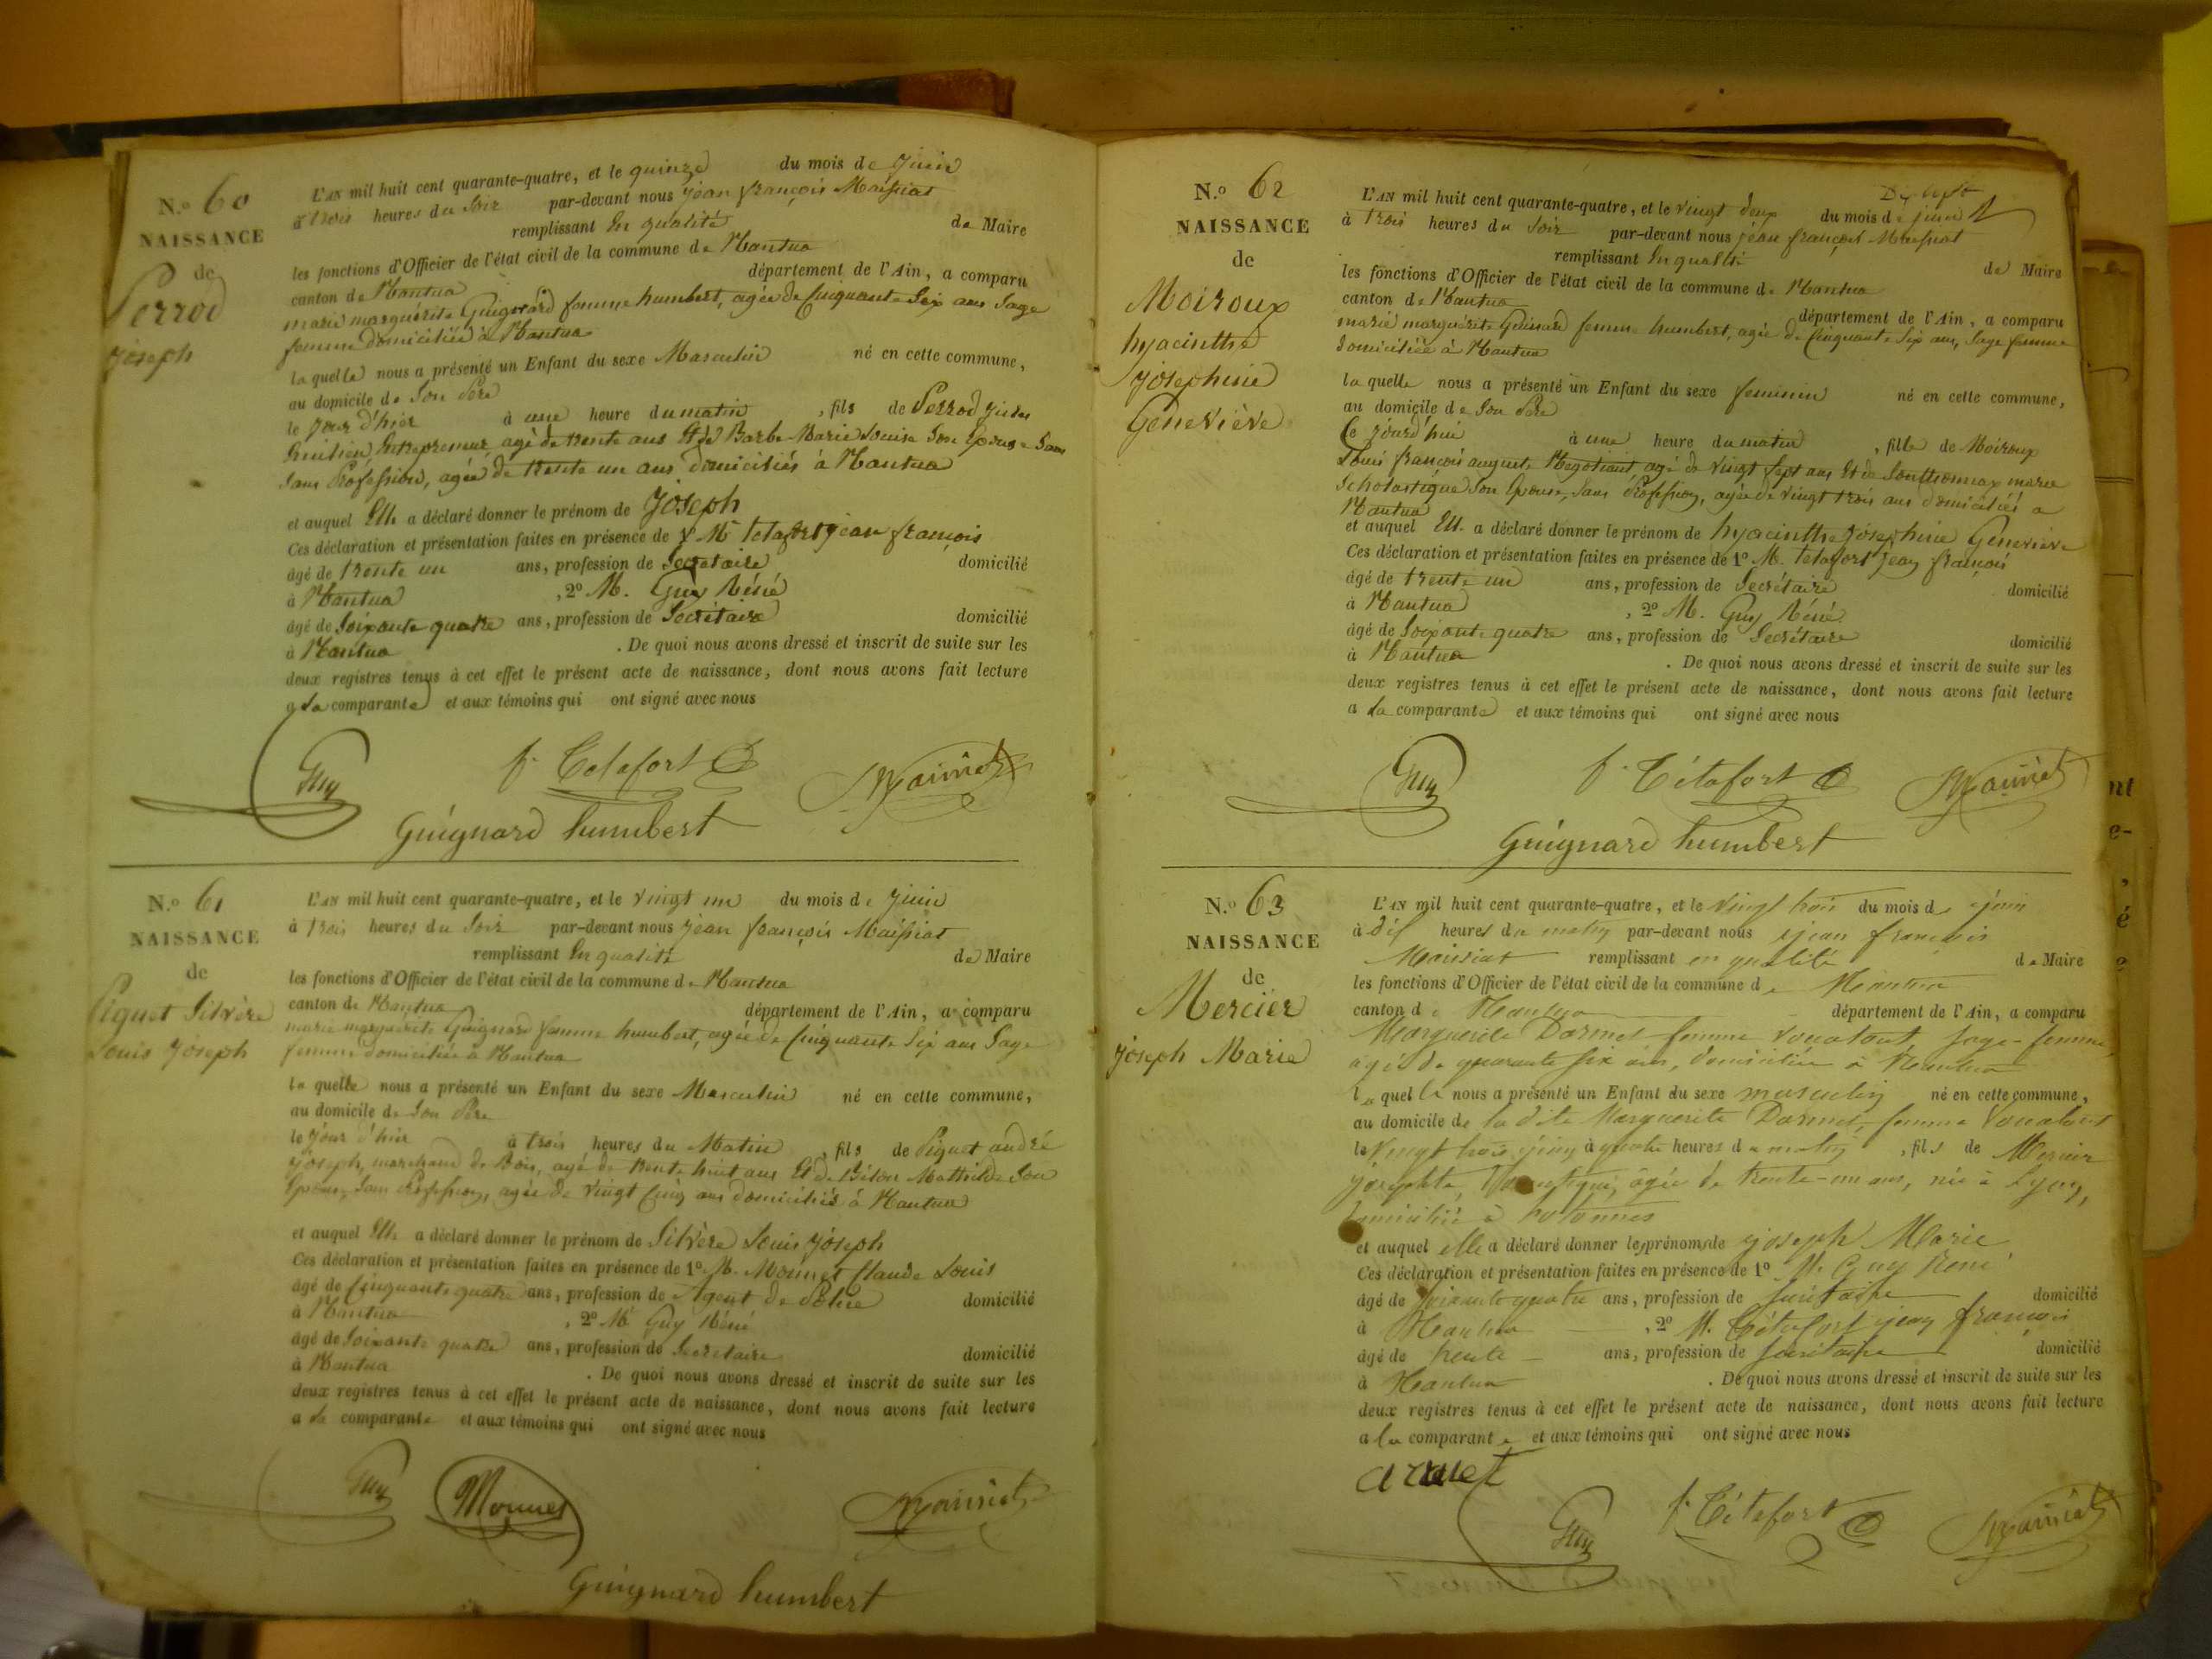 N.º 60
NAISSANCE
de
Perrod
joseph
L'AN mil huit cent quarante-quatre, et le quinze du mois de juin
à trois heures du soir par-devant nous jean françois Maissiat
remplissant En qualité de Maire
les fonctions d'Officier de l'état civil de la commune de Nantua
canton de Nantua département de l'Ain, a comparu
marie marguerite Guignard femme humbert, agée de Cinquante Six ans Sage
femme domiciliée à Nantua
laquelle nous a présenté un Enfant du sexe Masculin né en cette commune,
au domicile de Son Père
le jour d'hier à une heure du matin , fils de Perrod
Entrepreneur, agé de trente ans Et de Barbe Marie Louise Son Epouse Sans
Sans Profession, agée de trente un ans domiciliés à Nantua
et auquel Elle a déclaré donner le prénom de Joseph
Ces déclaration et présentation faites en présence de 1º M. Tétafort jean françois
âgé de trente un ans, profession de Secretaire domicilié
à Nantua , 2º M. Guy Réné
âgé de Soixante quatre ans, profession de Secrétaire domicilié
à Nantua . De quoi nous avons dressé et inscrit de suite sur les
deux registres tenus à cet effet le présent acte de naissance, dont nous avons fait lecture
a la comparante et aux témoins qui ont signé avec nous
Guy f. Tétafort Maissiat
Guignard humbert
N.º 61
NAISSANCE
de
Piquet Silvère
Louis joseph
L'AN mil huit cent quarante-quatre, et le vingt un du mois de juin
à trois heures du soir par-devant nous jean françois Maissiat
remplissant En qualité de Maire
les fonctions d'Officier de l'état civil de la commune de Nantua
canton de Nantua département de l'Ain, a comparu
marie marguerite Guignard femme humbert, agée de Cinquante Six ans Sage
femme domiciliée à Nantua
laquelle nous a présenté un Enfant du sexe Masculin né en cette commune,
au domicile de Son Père
le jour d'hier à trois heures du Matin , fils de Piquet andré
joseph, marchand de Bois, agé de trente huit ans Et de Mathilde Son
Epouse, Sans Profession, agée de vingt Cinq ans domiciliés à Nantua
et auquel Elle a déclaré donner le prénom de Silvère Louis joseph
Ces déclaration et présentation faites en présence de 1º M. Monnet Claude Louis
âgé de Cinquante quatre ans, profession de Agent de Police domicilié
à Nantua , 2º M Guy Réné
âgé de Soixante quatre ans, profession de Secretaire domicilié
à Nantua . De quoi nous avons dressé et inscrit de suite sur les
deux registres tenus à cet effet le présent acte de naissance, dont nous avons fait lecture
a la comparante et aux témoins qui ont signé avec nous
Guy Monnet Maissiat
Guignard humbert
N.º 62
NAISSANCE
de
Moiroux
hyacinthe
josephine
Geneviève
L'AN mil huit cent quarante-quatre, et le vingt deux du mois de juin
à trois heures du soir par-devant nous jéan françois Maissiat
remplissant En qualité de Maire
les fonctions d'Officier de l'état civil de la commune de Nantua
canton de Nantua département de l'Ain, a comparu
marie marguérite Guinard femme humbert, agée de Cinquante Six ans, Sage femme
domiciliée à Nantua
laquelle nous a présenté un Enfant du sexe feminin né en cette commune,
au domicile de Son Père
Ce jourd'hui à une heure du matin , fille de Moiroux
Louis françois auguste Negotiant agé de vingt sept ans Et de Sonthonnax marie
Scholastique Son Epouse, Sans Profession, agée de vingt trois ans domiciliés a
Nantua
et auquel Elle a déclaré donner le prénom de hyacinthe josephine Geneviève
Ces déclaration et présentation faites en présence de 1º M. Tétafort jean françois
âgé de trente un ans, profession de Secrétaire domicilié
à Nantua , 2º M. Guy Réné
âgé de Soixante quatre ans, profession de Secrétaire domicilié
à Nantua . De quoi nous avons dressé et inscrit de suite sur les
deux registres tenus à cet effet le présent acte de naissance, dont nous avons fait lecture
a la comparante et aux témoins qui ont signé avec nous
Guy f. Tétafort Maissiat
Guignard humbert
N.º 63
NAISSANCE
de
Mercier
joseph Marie
L'AN mil huit cent quarante-quatre, et le vingt trois du mois de juin
à dix heures du matin par-devant nous jean françois
Maissiat remplissant en qualité de Maire
les fonctions d'Officier de l'état civil de la commune de Nantua
canton de Nantua département de l'Ain, a comparu
Marguerite Darmet femme Vouatout, sage-femme,
agée de quarante six ans, domiciliée à Nantua
laquelle nous a présenté un Enfant du sexe masculin né en cette commune,
au domicile de la dite Marguerite Darmet, femme Vouatout
le vingt trois juin à quatre heures du matin , fils de Mercier
josephte, agée de trente-un ans, née à Lyon,
domiciliée à hotonnes
et auquel elle a déclaré donner les prénoms de joseph Marie
Ces déclaration et présentation faites en présence de 1º M. Guy René
âgé de soixante quatre ans, profession de secrétaire domicilié
à Nantua , 2º M. Tétafort jean françois
âgé de trente ans, profession de secrétaire domicilié
à Nantua . De quoi nous avons dressé et inscrit de suite sur les
deux registres tenus à cet effet le présent acte de naissance, dont nous avons fait lecture
a la comparante et aux témoins qui ont signé avec nous
Guy f. Tétafort Maissiat